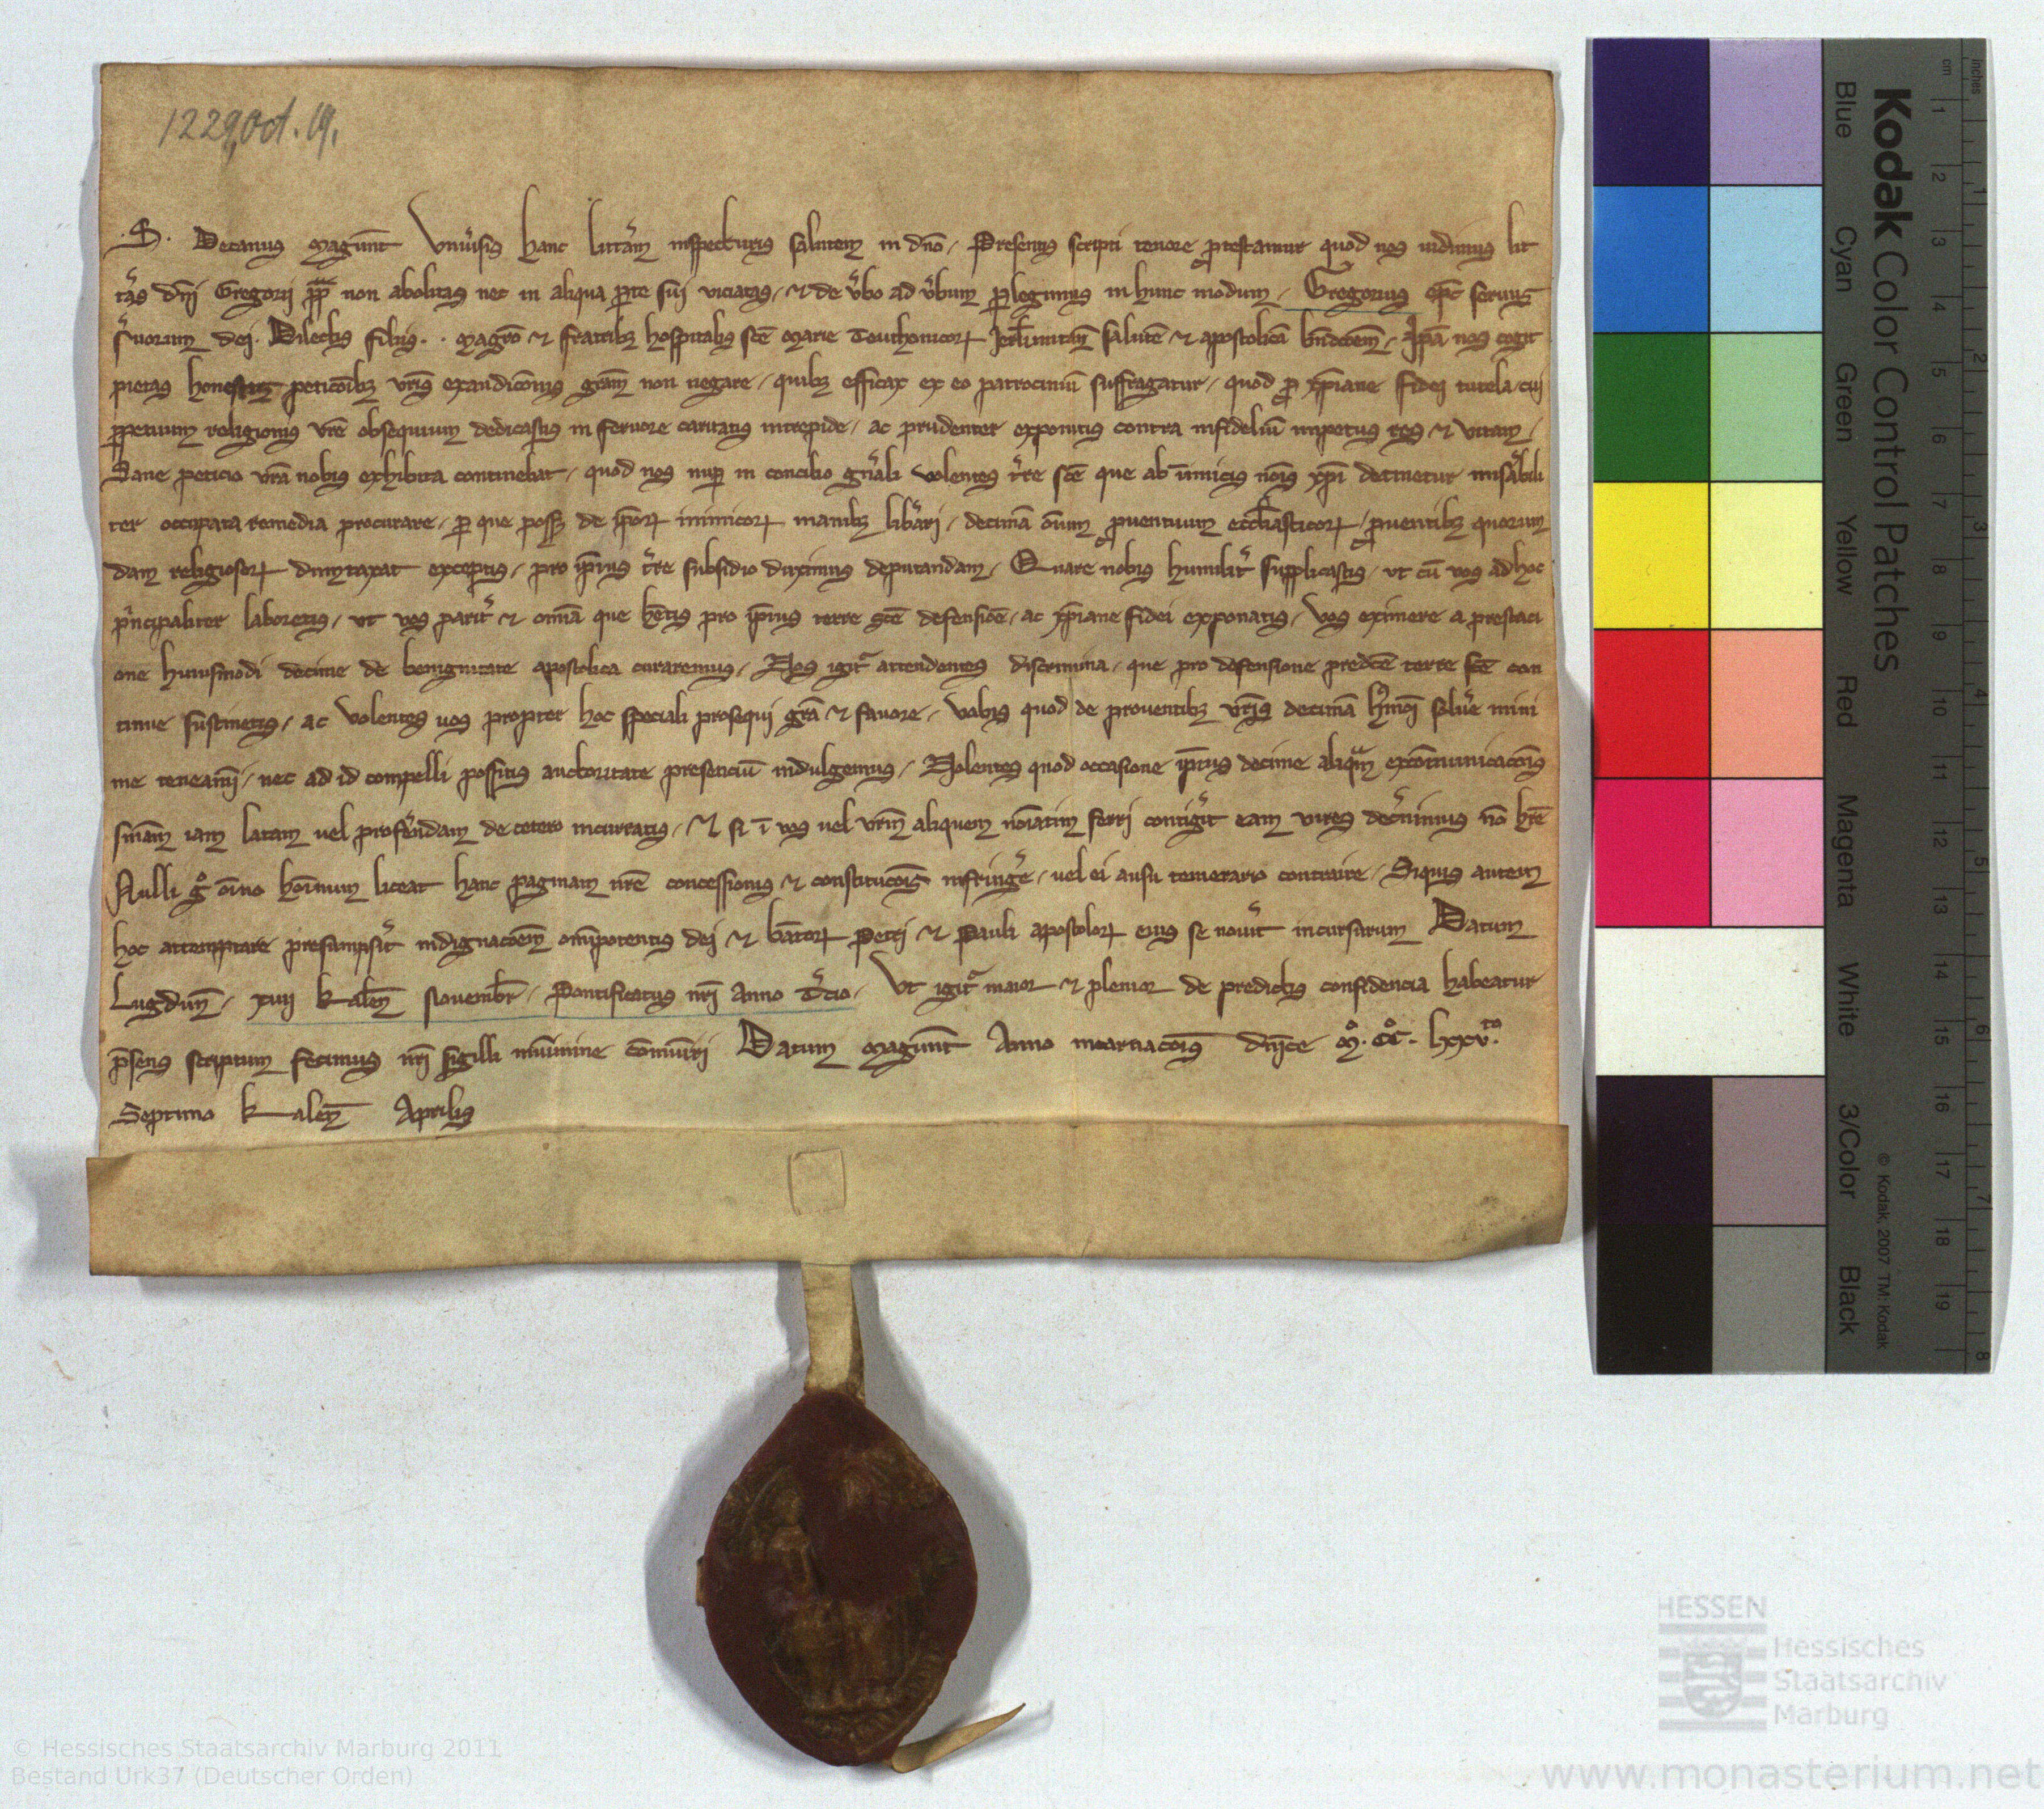 1229, Oct. 19.
.S. Decanus Magunt̄ Vniu̾sis hanc litt̾am inspecturis salutem in dn̄o. Presentis scripti tenore ꝓtestamur quod nos uidimus lit
t̾as dn̄i Gregorij pp̄ non abolitas nec in aliqua ꝑte sui viciatas. ⁊ de v̾bo ad v̾bum ꝑlegimus in hunc modum. Gregorius ep̄c seruus
s̾uorum dei. Dilectis filijs . . Magr̄o ⁊ fratribꝫ hospitalis sc̄e Marie Teuthonicoꝝ Jerl̄imitan̄ salutē ⁊ apostolicā bn̄dcōem. Ip̄a nos cogit
pietas honestis peticōibꝫ vr̄is exaudicōnis gr̄am non negare. quibꝫ efficax ex eo patrociniū suffragatur. quod ꝓ xp̄iane fidei tutela. cui
ꝑpetuum religionis vr̄e obsequium dedicastis in feruore caritatis intrepide. ac prudenter exponitis contra infideliū impetus res ⁊ vitam.
Sane peticio vr̄a nobis exhibita continebat. quod nos nuꝑ in concilio gn̄ali volentes t̾re sc̄e que ab inimicis nōis xp̄i detinetur mis̾abili
ter occupata remedia procurare. ꝑ que possꝫ de ip̄oꝝ inimicoꝝ manibꝫ lib̾ari. decimā om̄um ꝓuentuum eccl̄iasticoꝝ. ꝓuentibꝫ quorum
dam religiosoꝝ dumtaxat exceptis. pro ip̄ius t̾re subsidio duximus deputandam. Quare nobis humilit̾ supplicastis. vt cū vos ad hoc
p̾ncipaliter laboretis. vt vos parit̾ ⁊ omīa que hētis pro ip̄ius terre sc̄e defensiōe. ac xp̄iane fidei exponatis. vos eximere a prestaci
one huiusmodi decime de benignitate apostolica curaremus. Nos igit̾ attendentes discrimina. que pro defensione predcē terre sc̄e con
tinue sustinetis. ac volentes uos propter hoc speciali prosequi gr̄a ⁊ fauore. vobis quod de prouentibꝫ vr̄is decimā hmōi solu̾e mini
me teneamī. nec ad id compelli possitis auctoritate presenciū indulgemus. Nolentes quod occasione ip̄ius decime aliqͣm excōmunicacōis
sn̄iam iam latam uel prof̾endam de cetero incurratis. ⁊ si ī vos uel vr̄m aliquem nōiatim ferri contig̾it eam vires dec̾nimus nō hr̄e
Nulli g̊ om̄no hōinum liceat hanc paginam nr̄e concessionis ⁊ constitucōis infring̾e. uel ei ausu temerario contraire. Siquis autem
hoc attemptare presumps̾it indignacōem om̄ipotentis dei ⁊ bātoꝝ Petri ⁊ Pauli apostoloꝝ eius se nou̾it incursurum Datum
Lugdun̄. xiiij Kalen̄ Nouembr̄. Pontificatus nr̄i Anno T̾cio. Vt igit̾ maior ⁊ plenior de predictis confidencia habeatur
p̄sens scriptum fecimus nr̄i sigilli munimine cōmuniri Datum Magunt̄ Anno incarnacōis dn̄ice M̊. CC̊. lxxv.ᵗᵒ
Septimo Kalen̄ Aprilis
Kodak Color Control Patches
Blue Cyan Green Yellow Red Magenta White 3/Color Black
© Kodak, 2007 TM: Kodak
cm 1 2 3 4 5 6 7 8 9 10 11 12 13 14 15 16 17 18 19
inches 1 2 3 4 5 6 7 8
HESSEN
Hessisches
Staatsarchiv
Marburg
© Hessisches Staatsarchiv Marburg 2011
Bestand Urk37 (Deutscher Orden)
www.monasterium.net